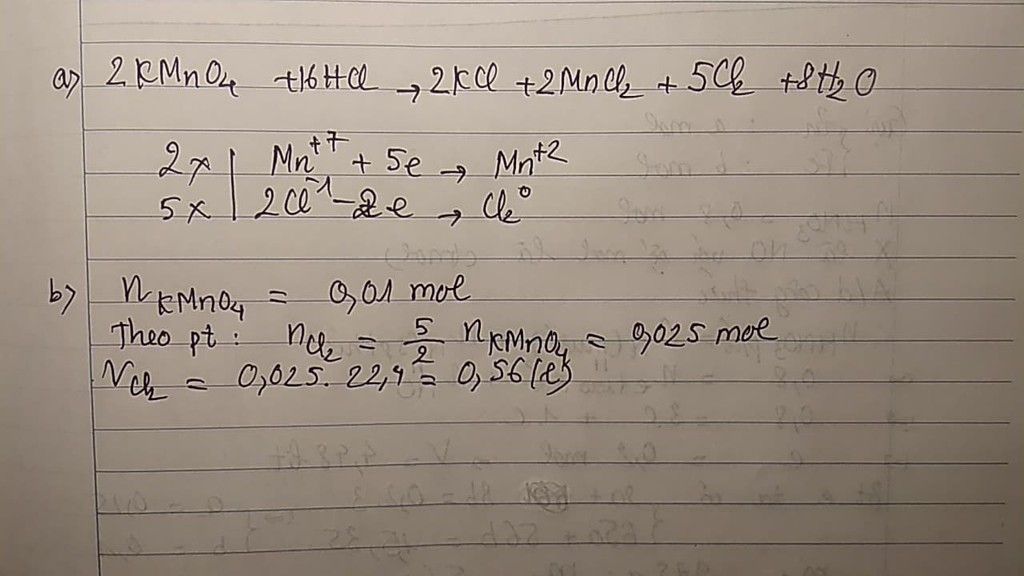 a) 2KMnO₄ +16HCl → 2KCl +2MnCl₂ + 5Cl₂ +8H₂O
2x | Mn⁺⁷ + 5e → Mn⁺²
5x | 2Cl⁻¹ - 2e → Cl₂⁰
b) n KMnO₄ = 0,01 mol
Theo pt : n Cl₂ = 5/2 n KMnO₄ = 0,025 mol
V Cl₂ = 0,025. 22,4 = 0,56 (l)